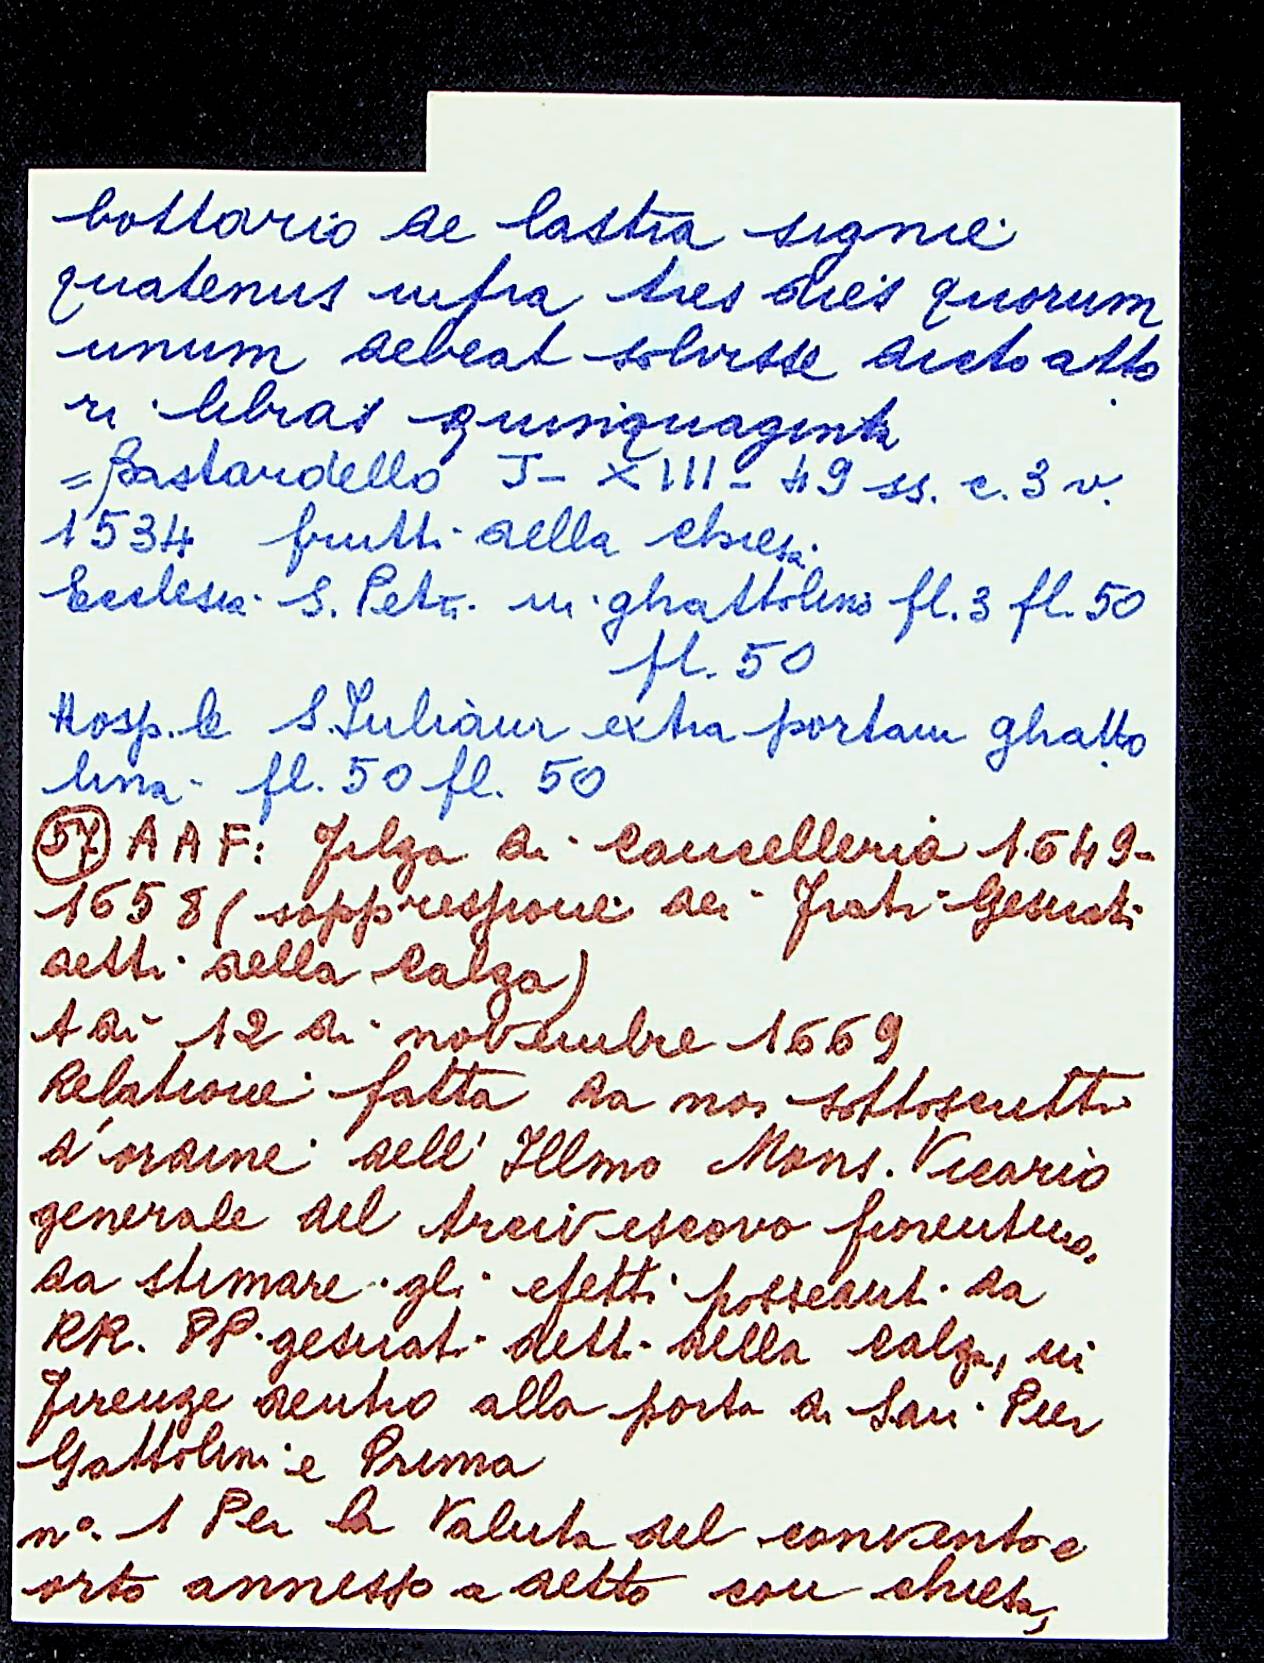 bottario de lastra signie
quatenus infra tres dies quorum
unum debeat solvisse dicto atto
ri libras quinquaginta
= Bastardello J- XIII- 49 ss. c. 3 v.
1534 frutti della chiesa
Ecclesia S. Petri in ghattolino fl. 3 fl. 50
fl. 50
Hosp.le S. Juliani extra portam ghatto
lina fl. 50 fl. 50
57 AAF: Filza di Cancelleria 1649-
1658 (soppressione dei Frati Gesuati
detti della Calza)
A dì 12 di novembre 1669
Relatione fatta da noi sottoscritti
d'ordine dell' Illmo Mons. Vicario
generale del Arcivescovo fiorentino,
da stimare gli efetti posseduti da
RR. PP. gesuati detti della Calza, in
Firenze dentro alla porta di San Pier
Gattolini e Prima
n°. 1 Per la Valuta del convento e
orto annesso a detto con chiesa,